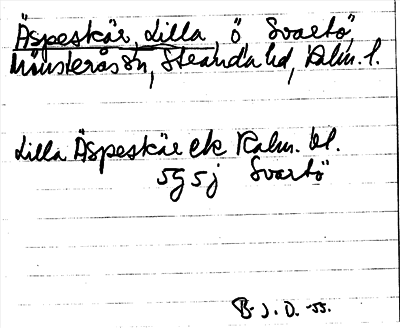 Äspeskär, Lilla, ö Svartö,
Mönsterås sn, Stranda hd, Kalm. l.
Lilla Äspeskär ek Kalm. bl.
5g5j Svartö
B. J. O. -55.